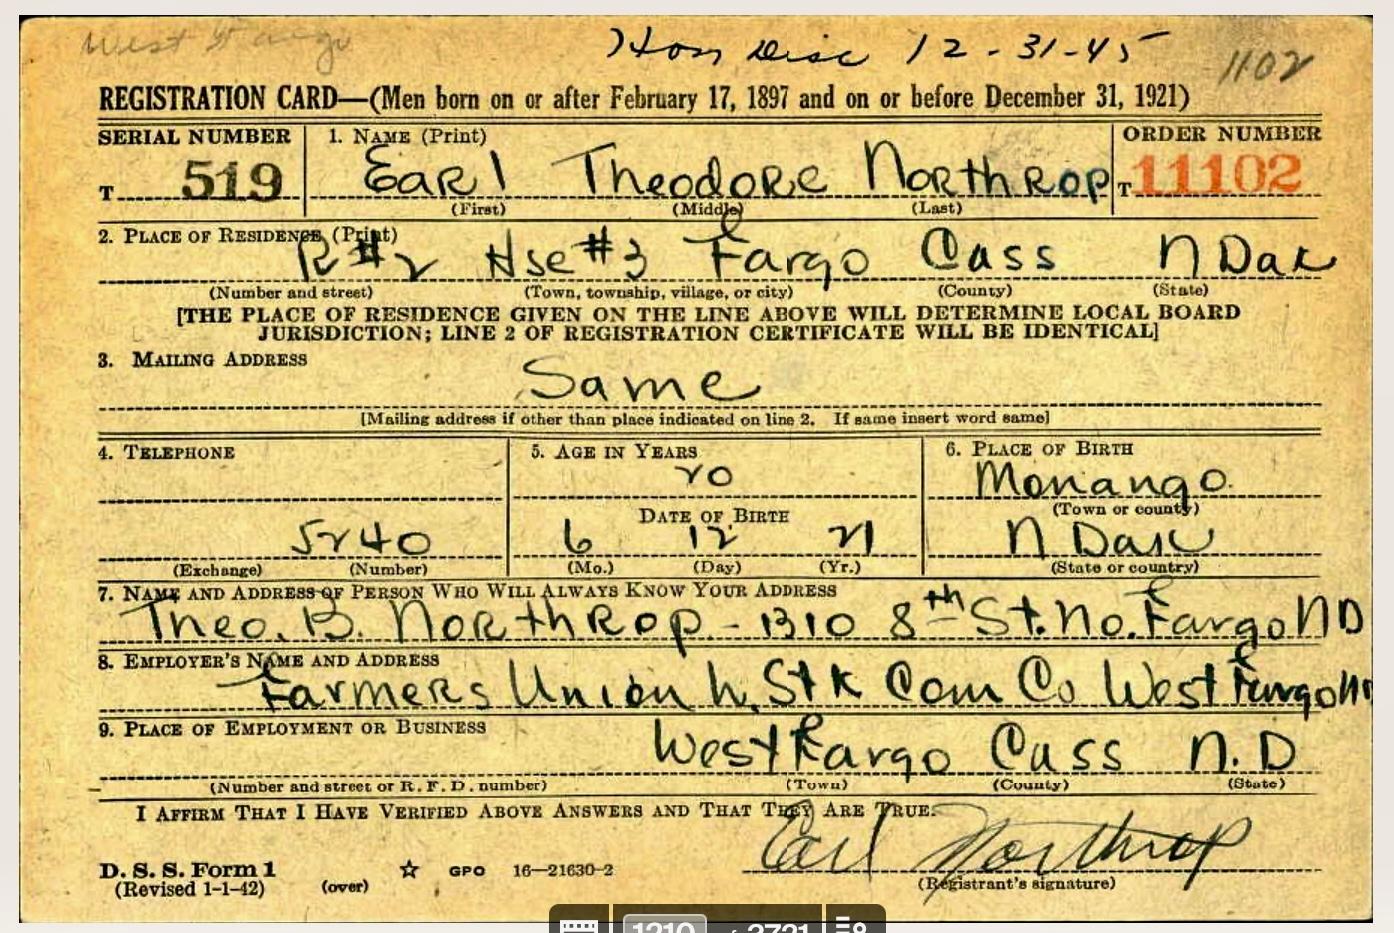 West Fargo
Hon Disc 12-31-45 1102
REGISTRATION CARD—(Men born on or after February 17, 1897 and on or before December 31, 1921)
SERIAL NUMBER 1. NAME (Print) ORDER NUMBER
T 519 Earl Theodore Northrop T 11102
(First) (Middle) (Last)
2. PLACE OF RESIDENCE (Print)
R#2 Hse #3 Fargo Cass N Dak
(Number and street) (Town, township, village, or city) (County) (State)
[THE PLACE OF RESIDENCE GIVEN ON THE LINE ABOVE WILL DETERMINE LOCAL BOARD
JURISDICTION; LINE 2 OF REGISTRATION CERTIFICATE WILL BE IDENTICAL]
3. MAILING ADDRESS
Same
[Mailing address if other than place indicated on line 2. If same insert word same]
4. TELEPHONE 5. AGE IN YEARS 6. PLACE OF BIRTH
20 Monango
DATE OF BIRTH (Town or county)
5240 6 12 21 N Dak
(Exchange) (Number) (Mo.) (Day) (Yr.) (State or country)
7. NAME AND ADDRESS OF PERSON WHO WILL ALWAYS KNOW YOUR ADDRESS
Theo. B. Northrop - 1310 8th St. No. Fargo ND
8. EMPLOYER'S NAME AND ADDRESS
Farmers Union L. Stk Com Co West Fargo
9. PLACE OF EMPLOYMENT OR BUSINESS
West Fargo Cass N.D
(Number and street or R. F. D. number) (Town) (County) (State)
I AFFIRM THAT I HAVE VERIFIED ABOVE ANSWERS AND THAT THEY ARE TRUE.
Earl Northrop
D. S. S. Form 1
(Revised 1-1-42) (over) GPO 16—21630-2 (Registrant's signature)